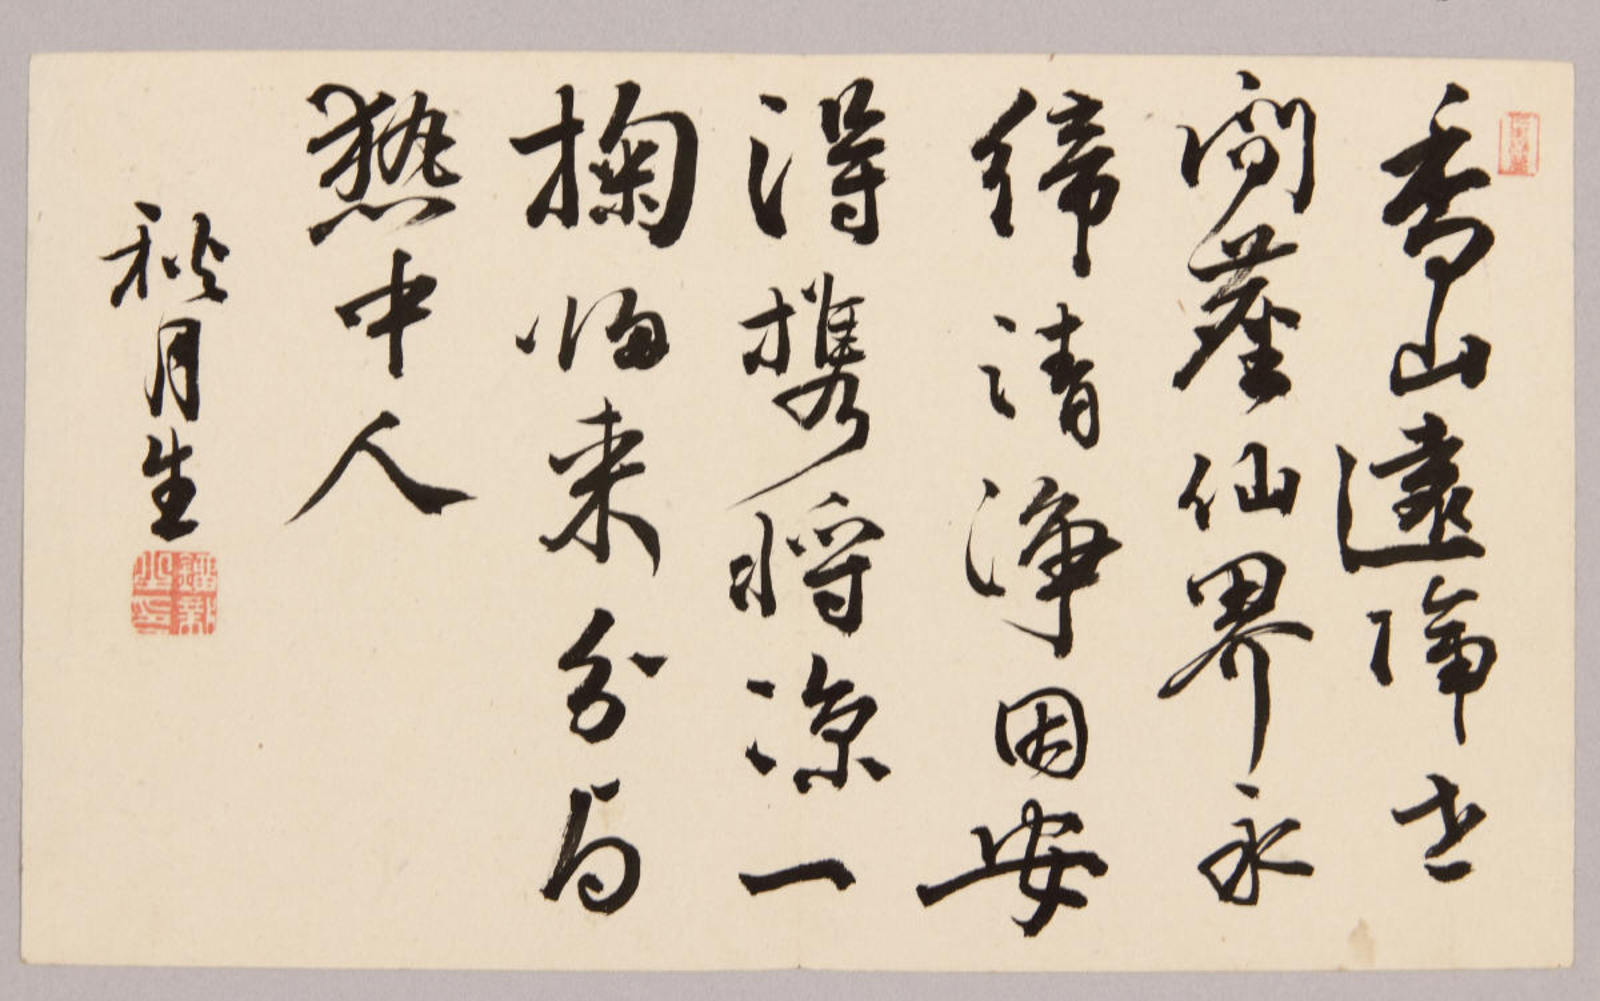 香山遠隔世
間塵仙界永
締清淨因安
得攜將涼一
掬归来分与
熱中人
秋月生